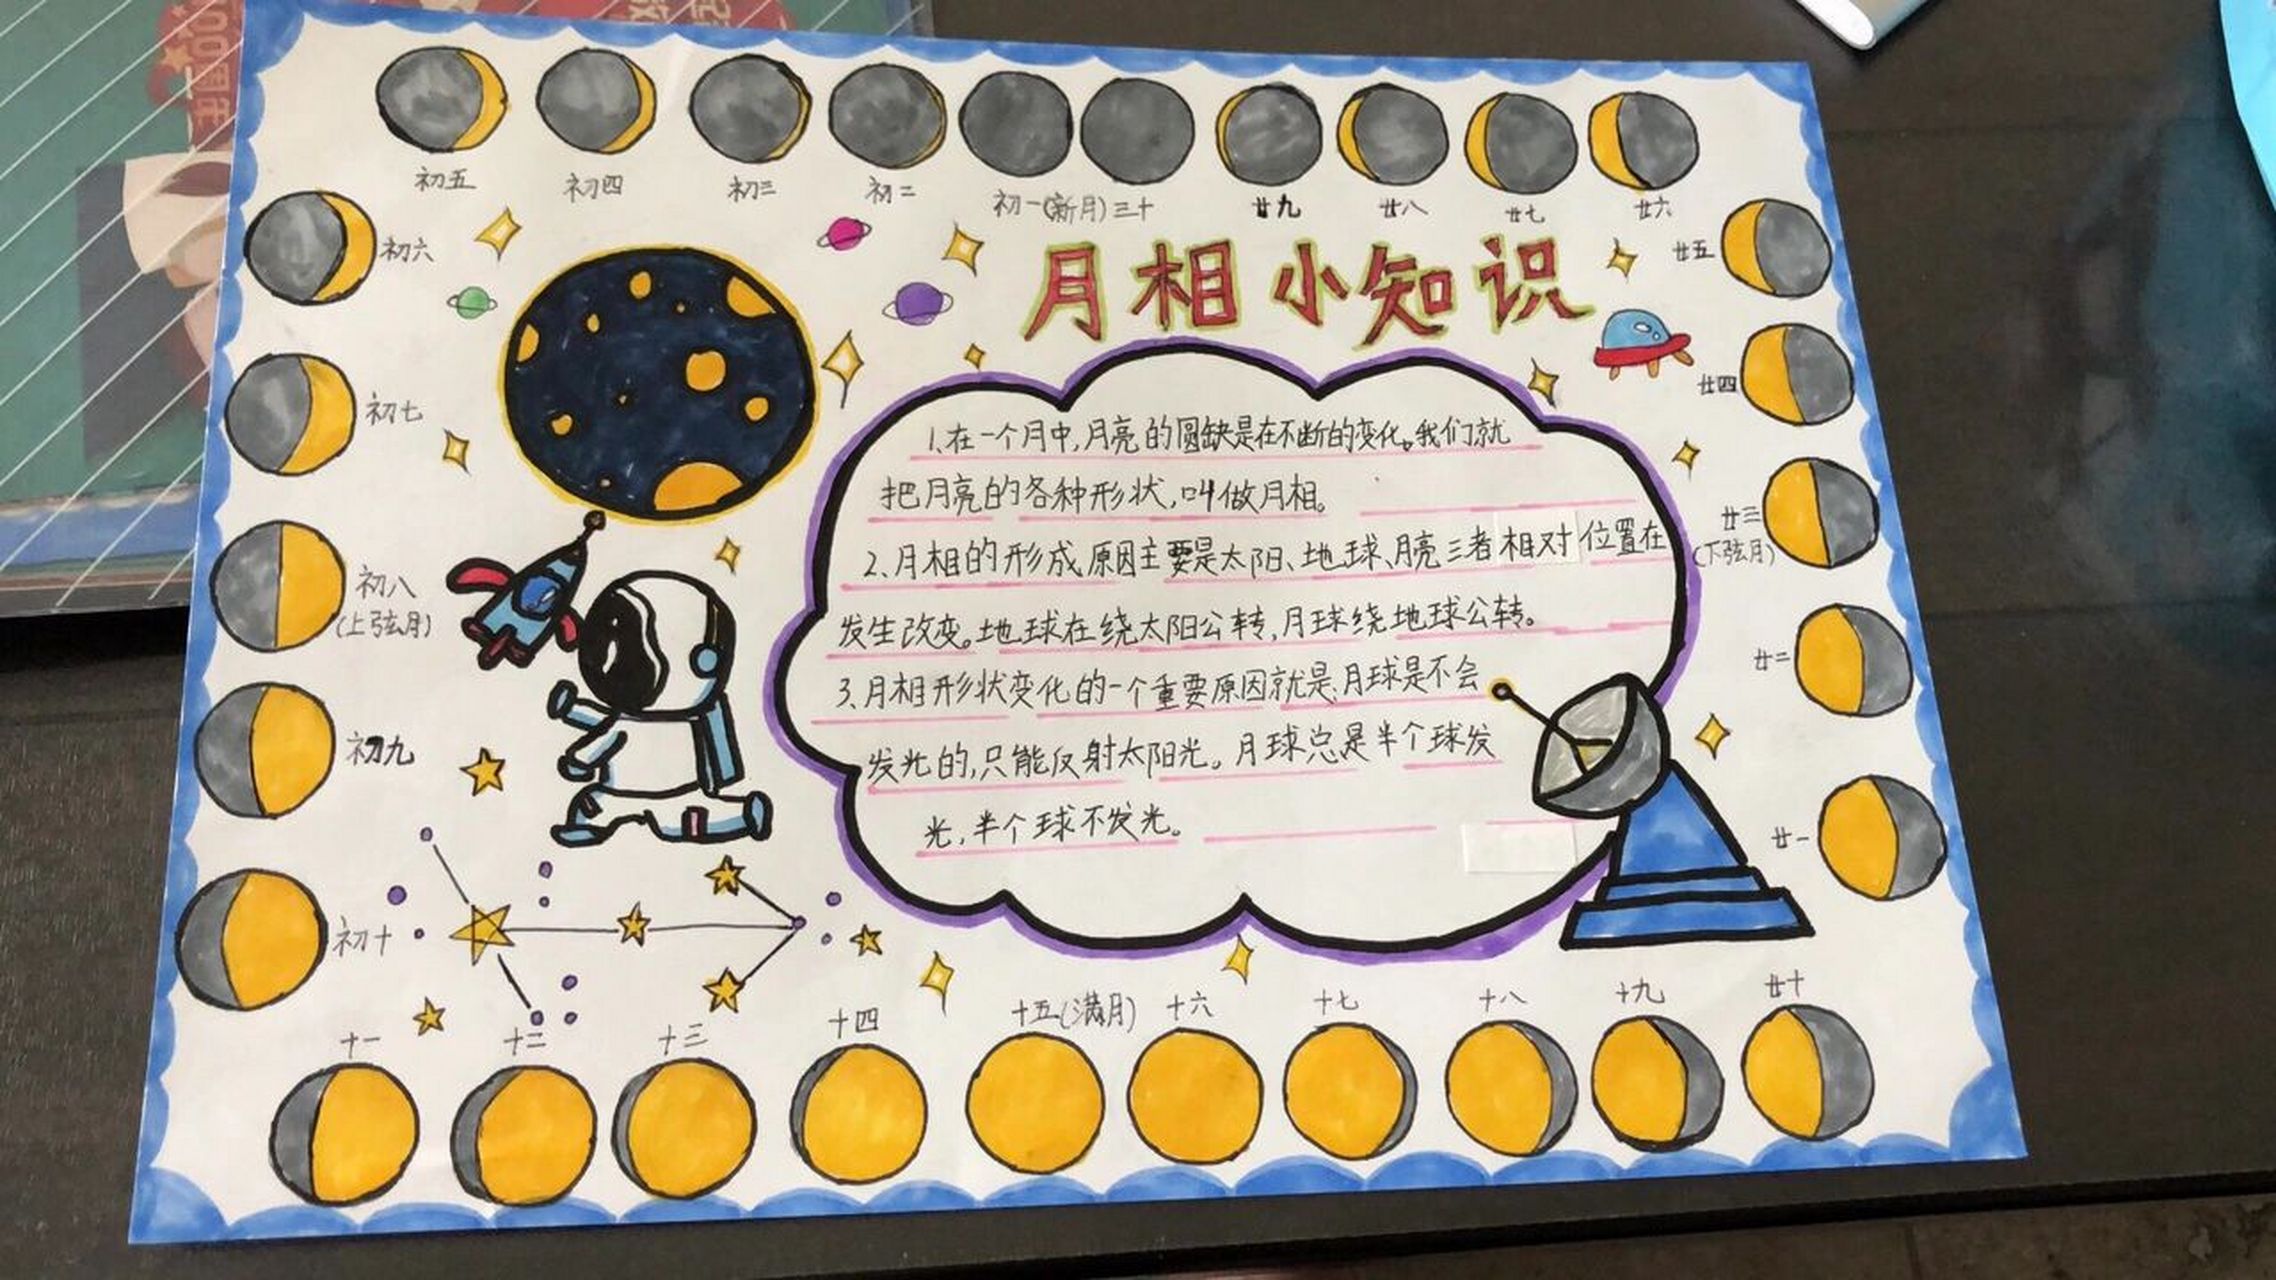 初五
初四
初三
初二
初一(新月)三十
廿九
廿八
廿七
廿六
初六
廿五
月相小知识
初七
廿四
1、在一个月中,月亮的圆缺是在不断的变化。我们就
把月亮的各种形状,叫做月相。
2、月相的形成原因主要是太阳、地球、月亮三者相对位置在
发生改变。地球在绕太阳公转,月球绕地球公转。
3、月相形状变化的一个重要原因就是、月球是不会
发光的,只能反射太阳光。月球总是半个球发
光,半个球不发光。
廿三
(下弦月)
初八
(上弦月)
廿二
初九
廿一
初十
十一
十二
十三
十四
十五(满月)
十六
十七
十八
十九
廿十
100周年